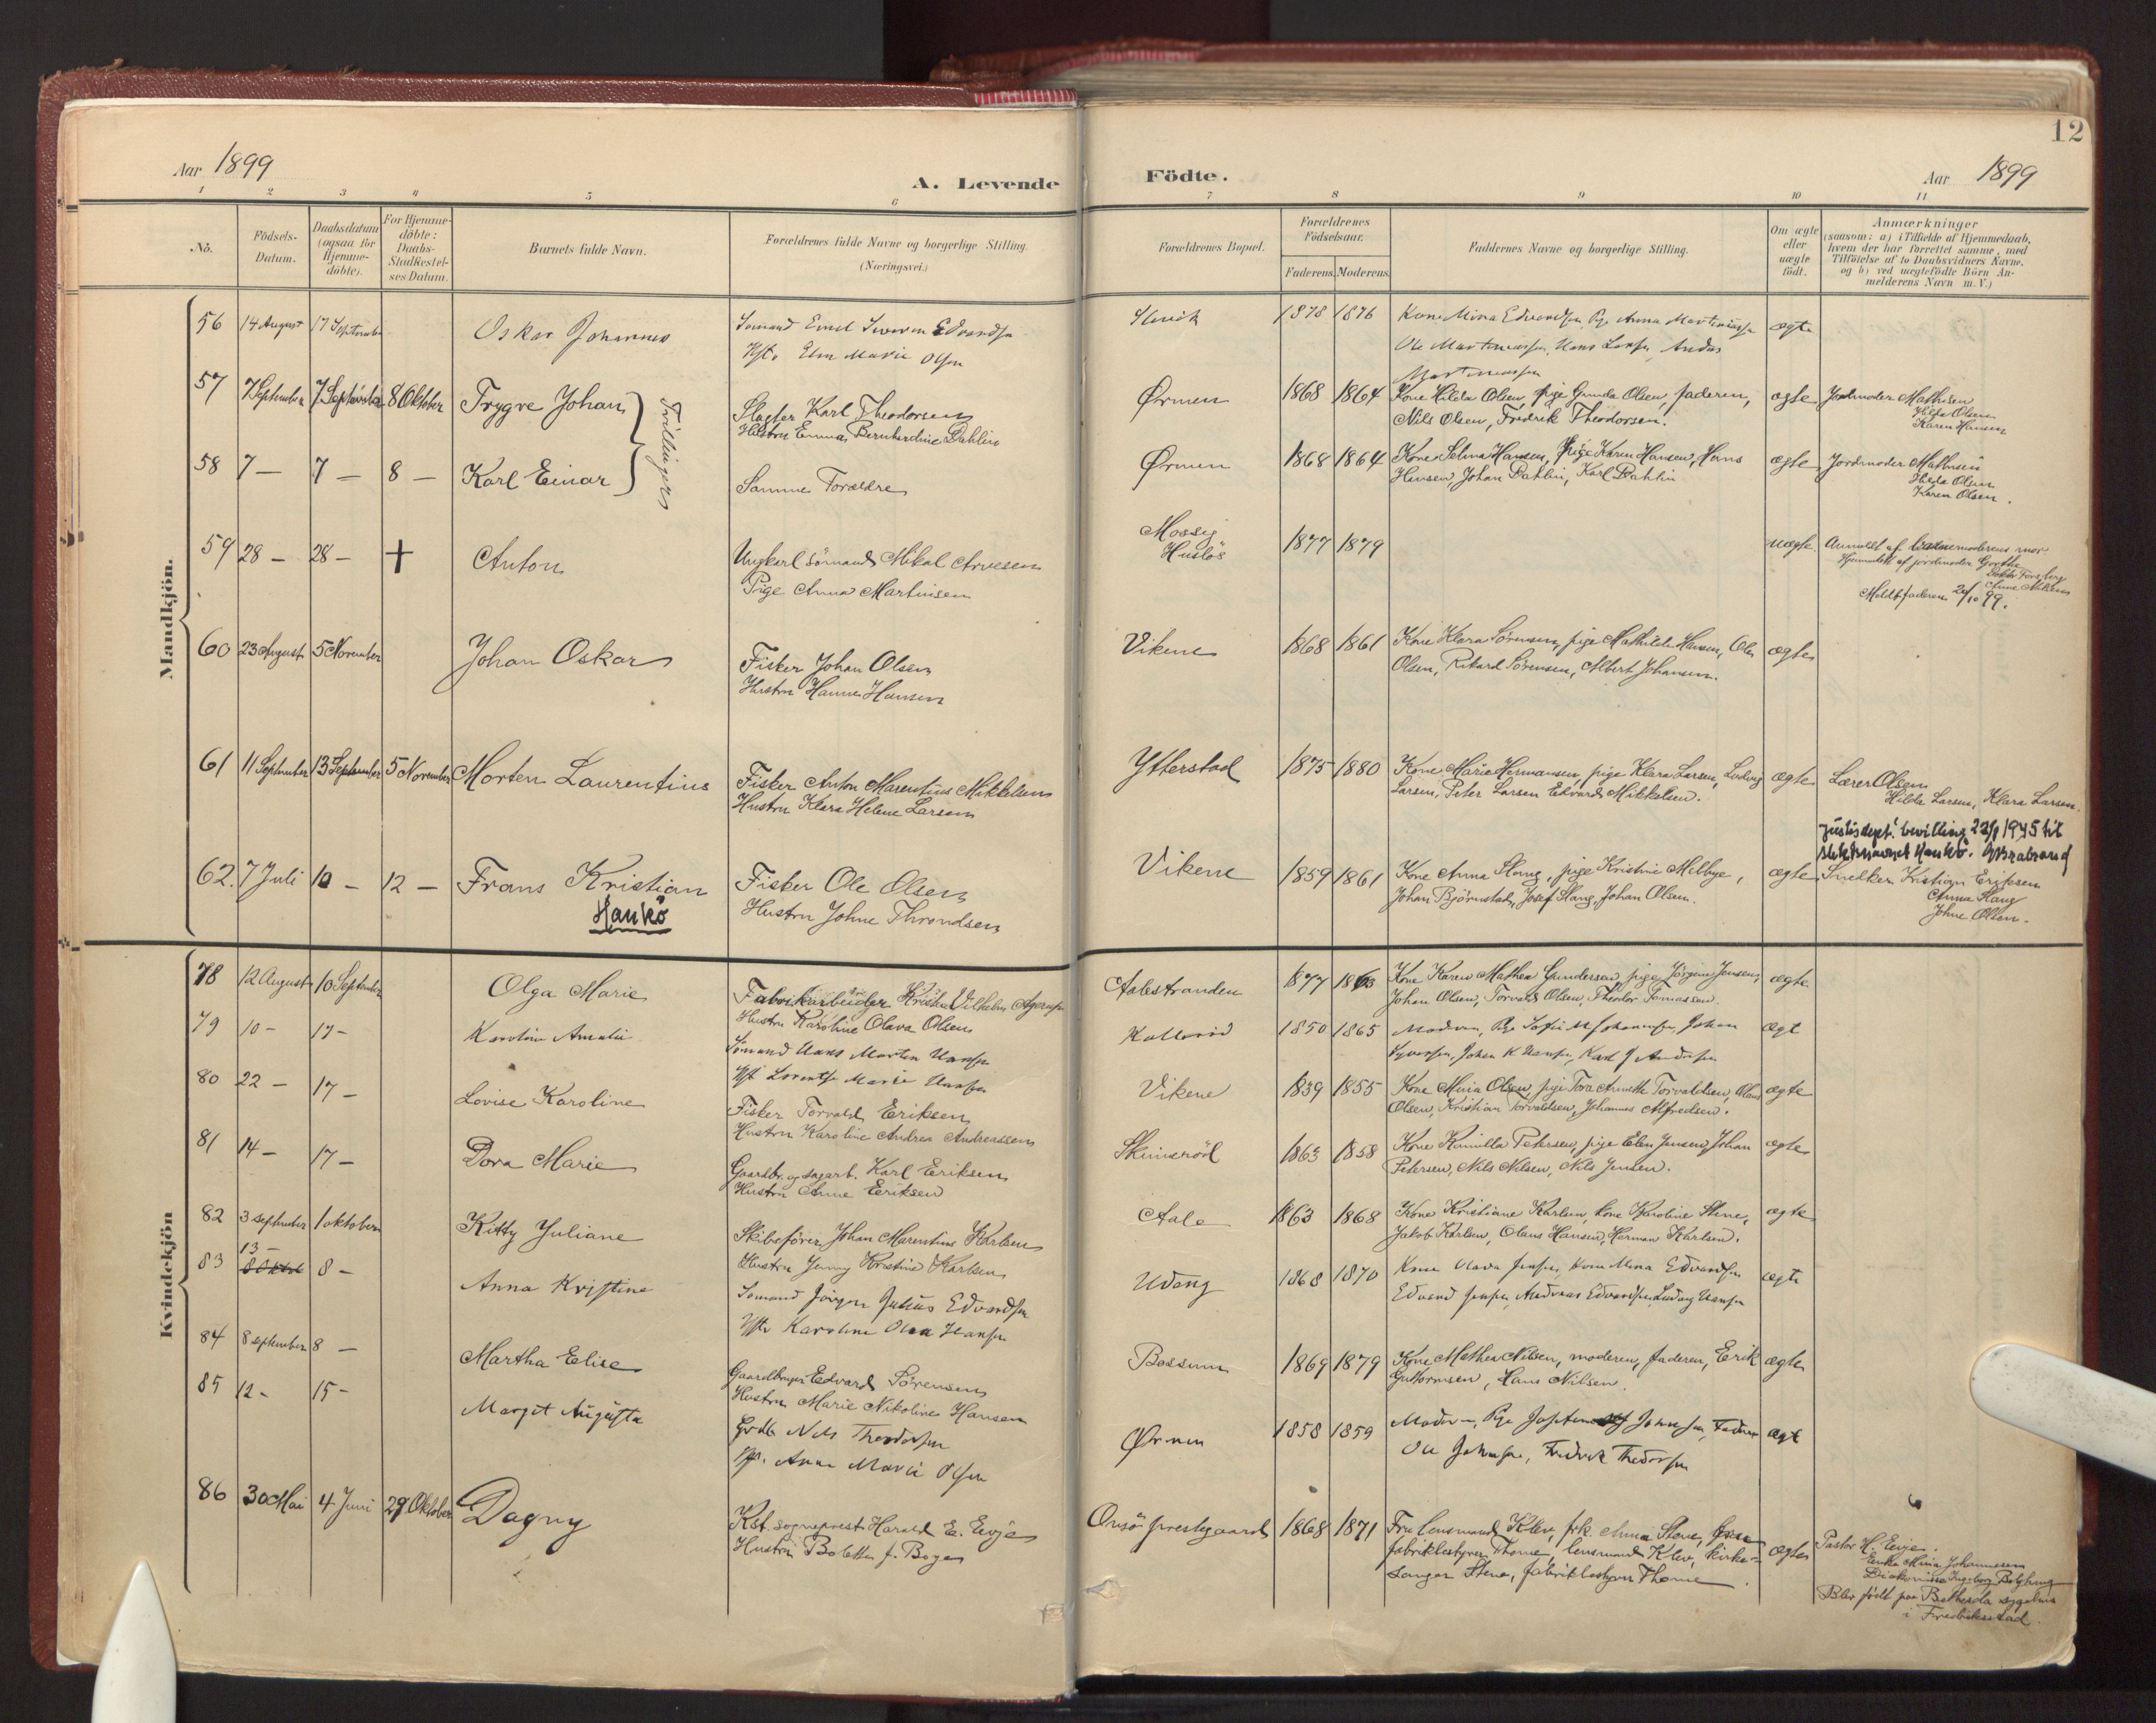 12
Aar 1899
A. Levende Födte.
Aar 1899
1 2 3 4 5 6 7 8 9 10 11
No.
Födsels-
Datum.
Daabsdatum
(ogsaa for
Hjemme-
döbte).
For Hjemme-
döbte:
Daabs-
Stadfæstel-
ses Datum.
Barnets fulde Navn.
Forældrenes fulde Navne og borgerlige Stilling.
(Næringsvei.)
Forældrenes Bopæl.
Forældrenes
Födselsaar.
Faderens. Moderens.
Faddernes Navne og borgerlige Stilling.
Om ægte
eller
uægte
født.
Anmærkninger
(saasom: a) i Tilfælde af Hjemmedaab,
hvem der har forrettet samme, med
Tilföielse af to Daabsvidners Navne.
og b) ved uægtefödte Börn An-
melderens Navn m.V.)
Mandkjön.
56 14 August 17 September Oskar Johannes
Sømand Emil Severin Edvardsen
Hst. Elen Marie Olsen
1878 1876
Kone Mina Edvardsen, Pige Anna Martiniussen
Ole Martiniussen, Hans Larsen, Andás
Martiniussen
ægte
57 7 September 7 September 8 Oktober Trygve Johan
Trillinger
Slagter Karl Theodorsen
Hustru Emma Bernhardine Dahlin
Ørmen 1868 1864
Kone Hilda Olsen, pige Gunda Olsen, faderen,
Nils Olsen, Fredrik Theodorsen.
ægte
Jordmoder Mathisen
Hilda Olsen
Karen Hansen
58 7 — 7 — 8 — Karl Einar
Samme Forældre
Ørmen 1868 1864
Kone Selma Hansen, Pige Karen Hansen, Hans
Hansen, Johan Dahlin, Karl Dahlin
ægte
Jordmoder Mathisen
Hilda Olsen
Karen Olsen.
59 28 — 28 — + Anton
Ungkarl sömand Mikal Arvesen
Pige Anna Martinsen
Mossig
Huslös
1877 1879
uægte
Anmeldt af moderens mor
Hjemmedøbt af jordmoder Grothe
Meldt faderen 24/10 99.
60 23 August 5 November Johan Oskar
Fisker Johan Olsen
Hustru Hanne Hansen
Vikene 1868 1861
Kone Klara Sörensen, pige Mathilde Hansen, Ole
Olsen, Rikard Sörensen, Albert Johansen.
ægte
61 11 September 13 September 5 November Morten Laurentius
Fisker Anton Marentius Mikkelsen
Hustru Klara Helene Larsen
Ytterstad 1875 1880
Kone Marie Hermansen, pige Klara Larsen, Ludvig
Larsen, Peter Larsen Edvard Mikkelsen.
ægte
Lærer Olsen
Hilda Larsen, Klara Larsen.
62. 7 Juli 10 — 12 — Frans Kristian
Hankö
Fisker Ole Olsen
Hustru Johne Throndsen
Vikene 1859 1861
Kone Anna Slang, pige Kristine Melbye,
Johan Björnstad, Josef Slang, Johan Olsen.
ægte
Justisdept. bevilling 22/1 1945 til
slektsnavnet Hankö. G Brabrand
Snekker Kristian Eriksen
Anna Slang
Johne Olsen.
Kvindekjön
78 12 August 10 September Olga Marie
Fabrikarbeider Kristian Vilhelm Agerup
Hustru Karoline Olava Olsen
Aalestranden 1877 1863
Kone Karen Mathea Gundersen, pige Jörgine Jensen,
Johan Olsen, Torvald Olsen, Theodor Tomassen.
ægte
79 10 — 17 — Karoline Amalie
Sömand Hans Martin Hansen
Hst Lorentse Marie Hansen
Kallerød 1850 1865
Moderen, Pige Sofie M Johannesen, Johan
Syversen, Johan K Hansen, Karl J Andersen
ægt
80 22 — 17 — Lovise Karoline
Fisker Torvald Eriksen
Hustru Karoline Andrea Andreassen
Vikene 1839 1855
Kone Mina Olsen, pige Tora Annette Torvaldsen, Olaus
Olsen, Kristian Torvaldsen, Johannes Alfredsen.
ægte
81 14 — 17 — Dora Marie
Gaardbr. og sagarb. Karl Eriksen
Hustru Anne Eriksen
Skinneröd 1863 1858
Kone Kamilla Petersen, pige Elen Jensen, Johan
Petersen, Nils Nilsen, Nils Jensen.
ægte
82 3 september 1 oktober Kitty Juliane
Skibsförer Johan Marentius Karlsen
Hustru Jenny Kristine Karlsen
Aale 1863 1868
Kone Kristiane Karlsen, kone Karoline Stene,
Jakob Karlsen, Olaus Hansen, Herman Karlsen.
ægte
83 13 — 8 — Anna Kristine
Sömand Jörgen Julius Edvardsen
Hst Karoline Olea Hansen
Udeng 1868 1870
Kone Olava Jensen, Kone Mina Edvardsen
Edvard Jensen, Andreas Edvardsen, Ludvig Hansen
ægte
84 8 september 8 — Martha Elise
Gaardbruger Edvard Sörensen
Hustru Marie Nikoline Hansen
Bossum 1869 1879
Kone Mathea Nilsen, moderen, faderen, Erik
Guttormsen, Hans Nilsen.
ægte
85 12 — 15 — Margit Augusta
Grdb. Nils Theodorsen
H. Anne Marie Olsen
Ørmen 1858 1859
Moderen, Pige Johnsen, Faderen
Ole Johnsen, Fredrik Thedorsen
ægt
86 30 Mai 4 Juni 29 Oktober Dagny
Kst. sogneprest Harald E. Evje
Hustru Bolette f. Boye
Onsö prestegaard 1868 1871
Fru lensmand Klev, frk. Anna Stene, fru
fabrikbestyrer Thorne, lensmand Klev, kirke-
sanger Stene, fabrikbestyrer Thorne.
ægte
Pastor H. Evje.
Enke Mina Johannesen
Diakonisse Ingeborg
Blev födt paa Bethesda sygehus
i Fredriksstad.